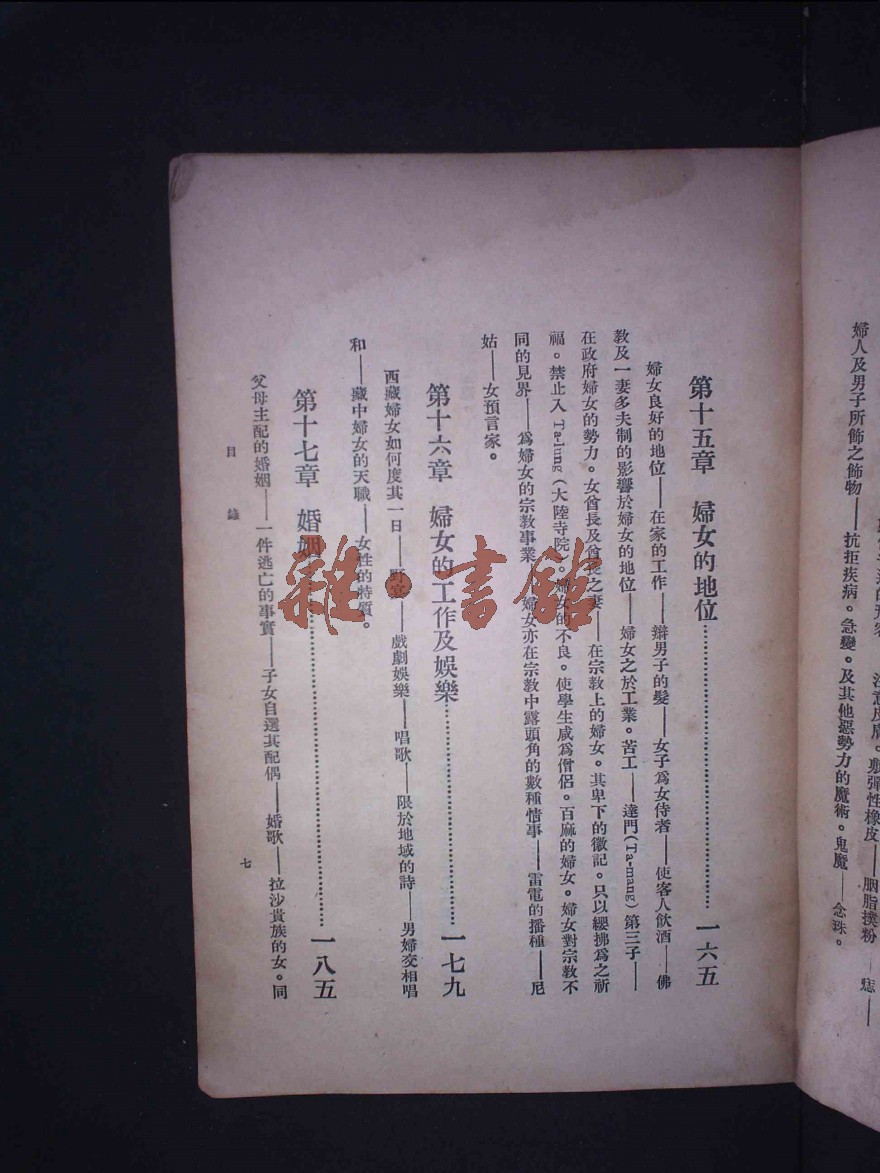 婦人及男子所飾之飾物——抗拒疾病。急變。及其他惡勢力的魔術。鬼魔——念珠。
第十五章　婦女的地位……………………一六五
婦女良好的地位——在家的工作——辮男子的髮——女子爲女侍者——使客人飲酒——佛
教及一妻多夫制的影響於婦女的地位——婦女之於工業。苦工——達門(Ta-mang)第三子——
在政府婦女的勢力。女酋長及酋長之妻——在宗教上的婦女。其卑下的徽記。只以纓拂爲之祈
福。禁止入 Ta-lung(大陸寺院)。婦女的不良。使學生咸爲僧侶。百麻的婦女。婦女對宗教不
同的見界——爲婦女的宗教事業——婦女亦在宗教中露頭角的數種情事——雷電的播種——尼
姑——女預言家。
第十六章　婦女的工作及娛樂……………………一七九
西藏婦女如何度其一日——野宴——戲劇娛樂——唱歌——限於地域的詩——男婦交相唱
和——藏中婦女的天職——女性的特質。
第十七章　婚姻……………………一八五
父母主配的婚姻——一件逃亡的事實——子女自選其配偶——婚歌——拉沙貴族的女。同
目錄
七
雜·書館